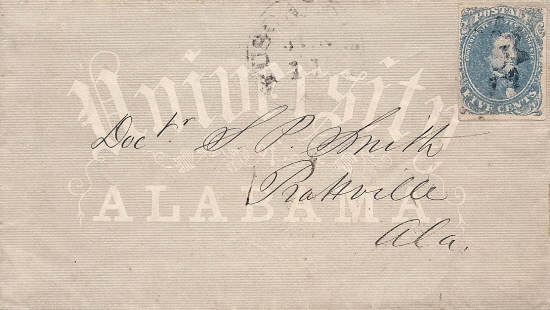 POSTA
FIVE CENTS
University
ALABAMA
Doctr S. P. Smith
Prattville
Ala.